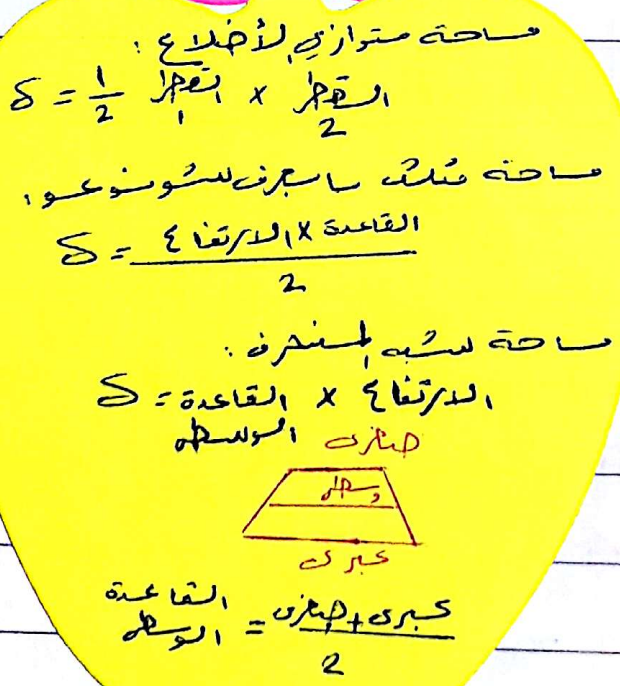 مساحة متوازي الأضلاع :
S = 1/2 القطر 1 × القطر 2
مساحة مثلث
S = القاعدة × الارتفاع / 2
مساحة لشبه المنحرف :
S = القاعدة الوسطى × الارتفاع
صغرى
وسطى
كبرى
القاعدة الوسطى = كبرى + صغرى / 2